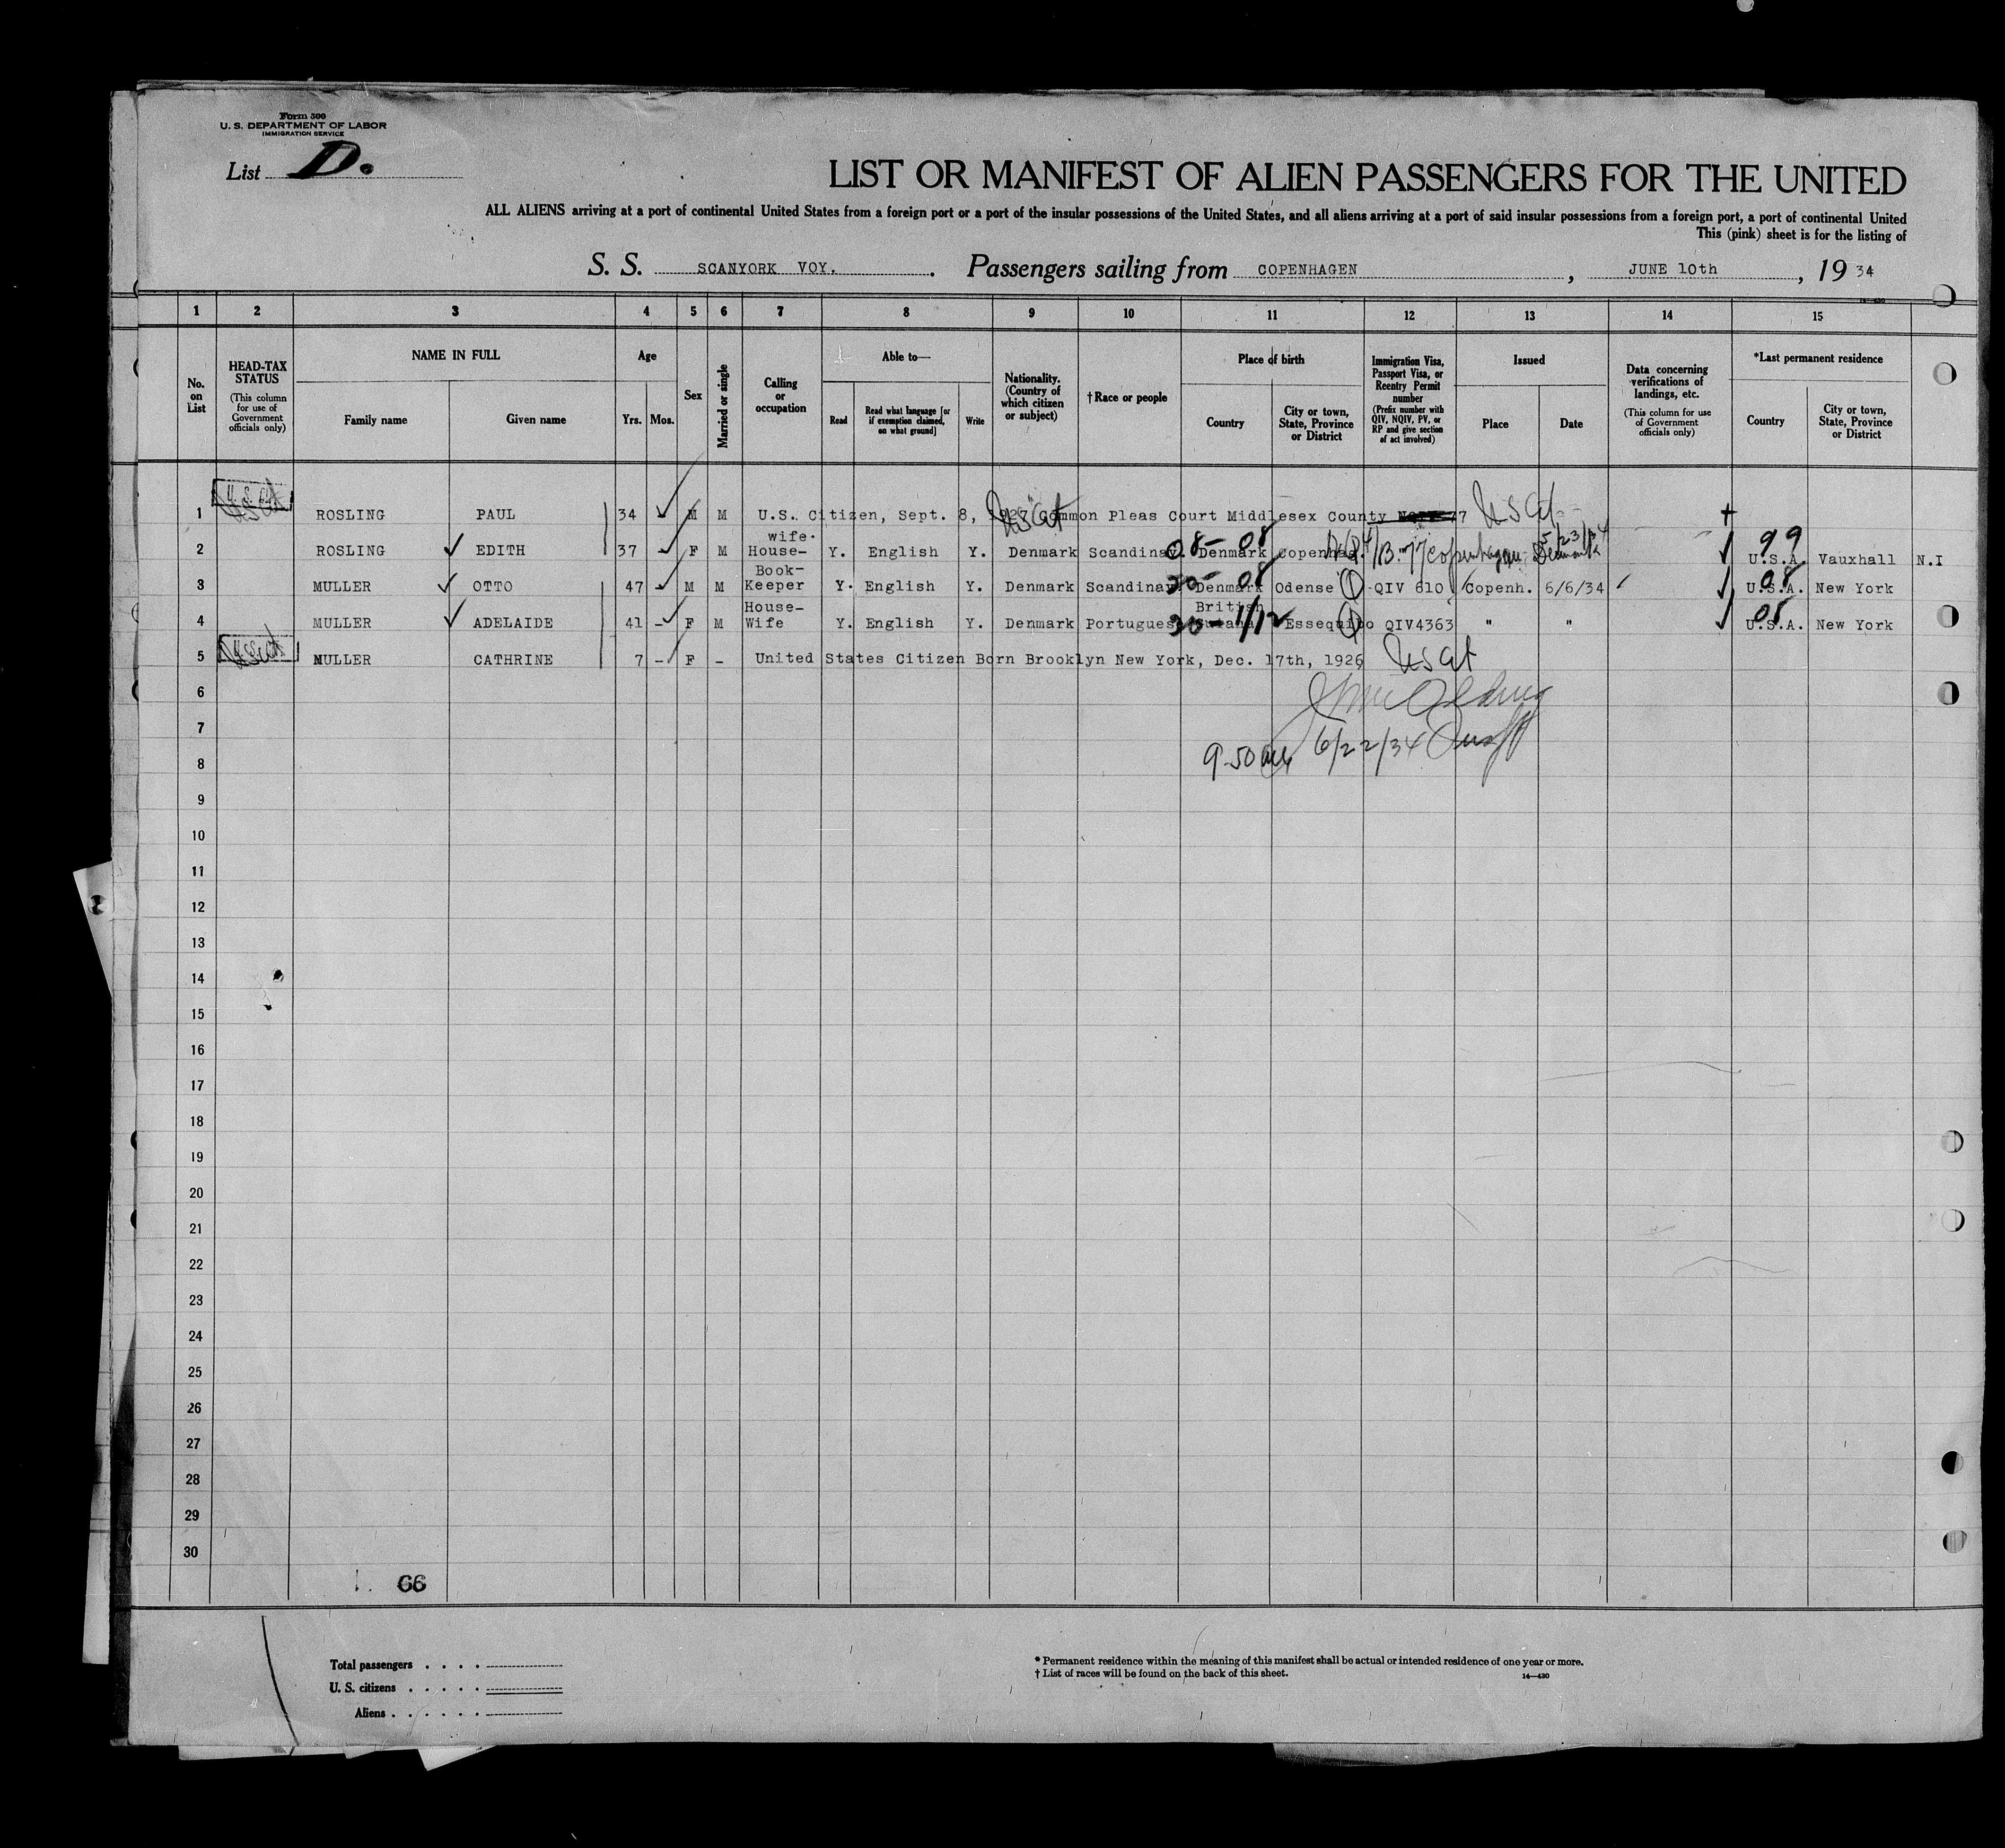 Form 500
U. S. DEPARTMENT OF LABOR
IMMIGRATION SERVICE
List D.
LIST OR MANIFEST OF ALIEN PASSENGERS FOR THE UNITED
ALL ALIENS arriving at a port of continental United States from a foreign port or a port of the insular possessions of the United States, and all aliens arriving at a port of said insular possessions from a foreign port, a port of continental United
This (pink) sheet is for the listing of
S. S. SCANYORK VOY. . Passengers sailing from COPENHAGEN , JUNE 10th , 19 34
1 2 3 4 5 6 7 8 9 10 11 12 13 14 15
No. on List
HEAD-TAX STATUS (This column for use of Government officials only)
NAME IN FULL
Family name Given name
Age
Yrs. Mos.
Sex
Married or single
Calling or occupation
Able to—
Read
Read what language [or if exemption claimed, on what ground]
Write
Nationality. (Country of which citizen or subject)
†Race or people
Place of birth
Country
City or town, State, Province or District
Immigration Visa, Passport Visa, or Reentry Permit number (Prefix number with QIV, NQIV, PV, or RP and give section of act involved)
Issued
Place Date
Data concerning verifications of landings, etc. (This column for use of Government officials only)
*Last permanent residence
Country
City or town, State, Province or District
1 ROSLING PAUL 34 M M U.S. Citizen, Sept. 8, Common Pleas Court Middlesex County
2 ROSLING EDITH 37 F M House-wife. Y. English Y. Denmark Scandinav. 08- 08 Denmark Copenhag. Copenhagen Denmark 5/23/34 99 U.S.A. Vauxhall N.I
3 MULLER OTTO 47 - M M Book-Keeper Y. English Y. Denmark Scandinav 08 Denmark Odense QIV 610 Copenh. 6/6/34 08 U.S.A. New York
4 MULLER ADELAIDE 41 - F M House-Wife Y. English Y. Denmark Portugues 30- 1/12 British Guiana Essequibo QIV4363 " " 08 U.S.A. New York
5 MULLER CATHRINE 7 - F - United States Citizen Born Brooklyn New York, Dec. 17th, 1926
6
7
9.50 6/22/34
8
9
10
11
12
13
14
15
16
17
18
19
20
21
22
23
24
25
26
27
28
29
30
66
Total passengers . . . .
U. S. citizens . . . . .
Aliens . . . . . .
* Permanent residence within the meaning of this manifest shall be actual or intended residence of one year or more.
† List of races will be found on the back of this sheet.
14—430